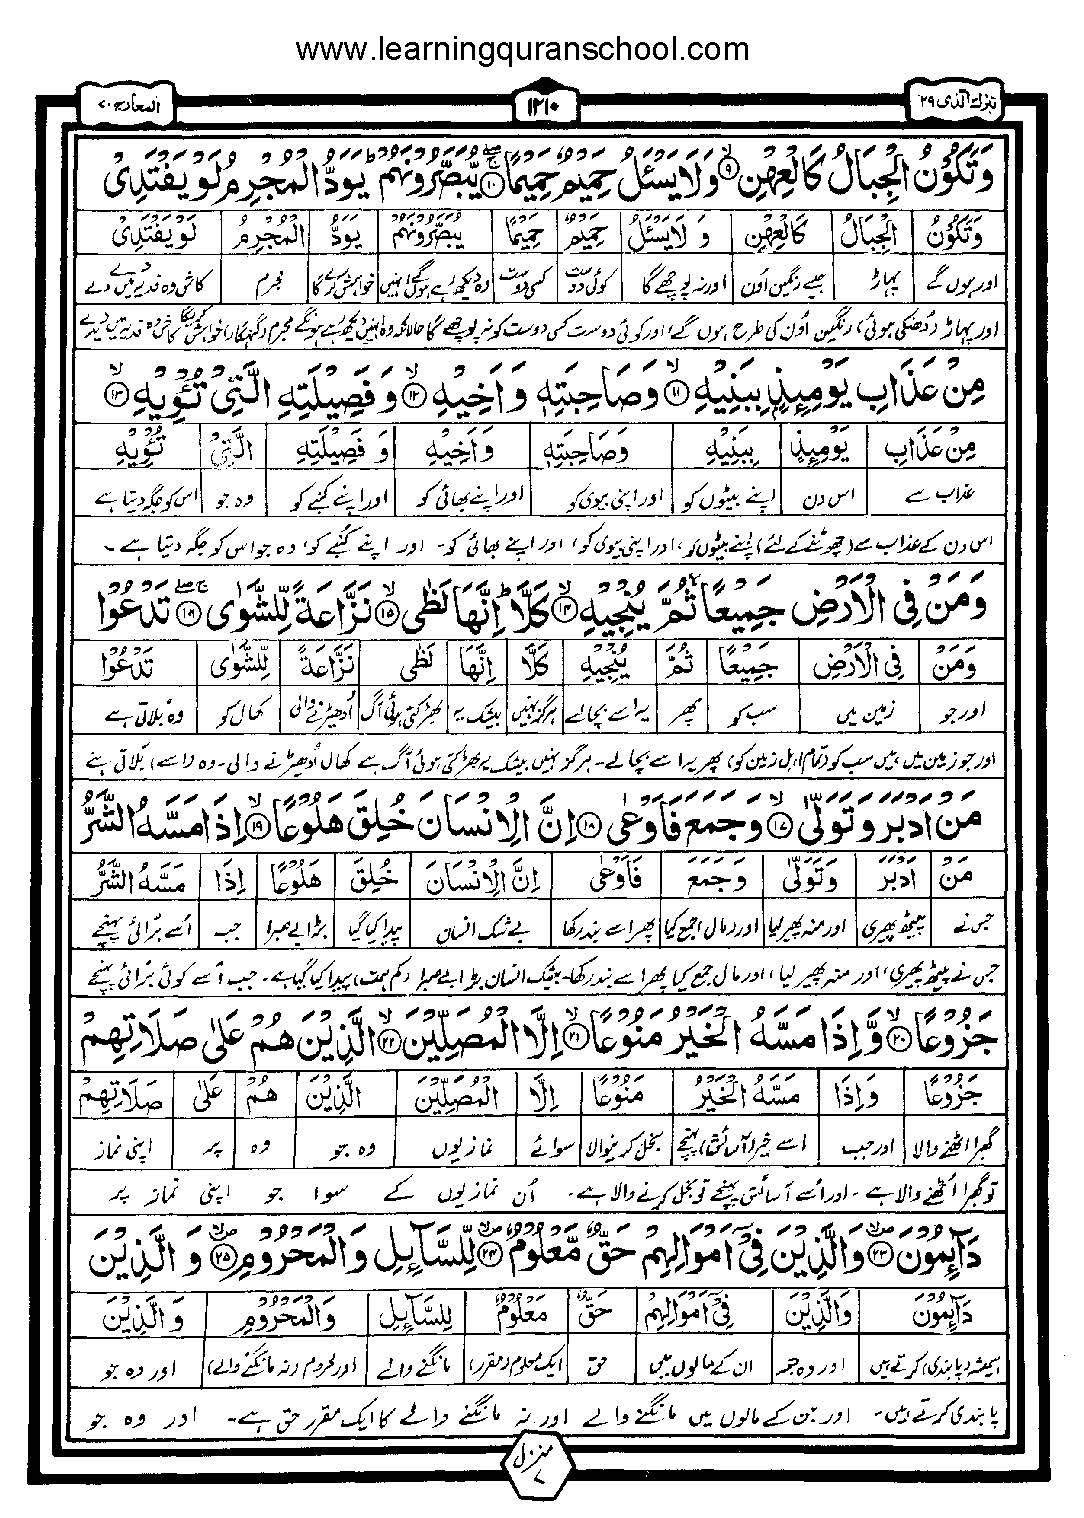 www.learningquranschool.com
تبٰرك الذی ۲۹
۱۲۱۰
المعارج ۷۰
وَتَكُوْنُ الْجِبَالُ كَالْعِهْنِ ۙ۹ وَلَا يَسْـَٔلُ حَمِيْمٌ حَمِيْمًا ۚۖ۱۰ يُّبَصَّرُوْنَهُمْ ؕ يَوَدُّ الْمُجْرِمُ لَوْ يَفْتَدِىْ
وَتَكُوْنُ الْجِبَالُ كَالْعِهْنِ وَ لَا يَسْـَٔلُ حَمِيْمٌ حَمِيْمًا يُّبَصَّرُوْنَهُمْ يَوَدُّ الْمُجْرِمُ لَوْ يَفْتَدِىْ
اور ہوں گے پہاڑ جیسے رنگین اُون اور نہ پوچھے گا کوئی دوست کسی دوست وہ دیکھ رہے ہوں گے انہیں خواہش کرے گا مجرم کاش وہ فدیہ میں دے
اور پہاڑ (دُھنکی ہوئی) رنگین اُون کی طرح ہوں گے، اور کوئی دوست کسی دوست کو نہ پوچھے گا حالانکہ وہ انہیں دیکھ رہے ہونگے مجرم (گنہگار) خواہش کریگا کاش وہ فدیہ میں دیدے
مِنْ عَذَابِ يَوْمِئِذٍۭ بِبَنِيْهِ ۙ۱۱ وَصَاحِبَتِهٖ وَاَخِيْهِ ۙ۱۲ وَفَصِيْلَتِهِ الَّتِىْ تُـْٔوِيْهِ ۙ۱۳
مِنْ عَذَابِ يَوْمِئِذٍ بِبَنِيْهِ وَصَاحِبَتِهٖ وَاَخِيْهِ وَ فَصِيْلَتِهِ الَّتِىْ تُـْٔوِيْهِ
عذاب سے اس دن اپنے بیٹوں کو اور اپنی بیوی کو اور اپنے بھائی کو اور اپنے کنبے کو وہ جو اس کو جگہ دیتا ہے
اس دن کے عذاب سے (چھوٹنے کے لئے) اپنے بیٹوں کو، اور اپنی بیوی کو، اور اپنے بھائی کو۔ اور اپنے کنبے کو، وہ جو اس کو جگہ دیتا ہے۔
وَمَنْ فِى الْاَرْضِ جَمِيْعًا ۙ ثُمَّ يُنْجِيْهِ ۙ۱۴ كَلَّا ؕ اِنَّهَا لَظٰى ۙ۱۵ نَزَّاعَةً لِّلشَّوٰى ۚۖ۱۶ تَدْعُوْا
وَمَنْ فِى الْاَرْضِ جَمِيْعًا ثُمَّ يُنْجِيْهِ كَلَّا اِنَّهَا لَظٰى نَزَّاعَةً لِّلشَّوٰى تَدْعُوْا
اور جو زمین میں سب کو پھر یہ اسے بچالے ہرگز نہیں بیشک یہ بھڑکتی ہوئی آگ اُدھیڑنے والی کھال کو وہ بلاتی ہے
اور جو زمین میں ہیں سب کو (تمام اہل زمین کو) پھر یہ اسے بچالے۔ ہرگز نہیں بیشک یہ بھڑکتی ہوئی آگ ہے کھال اُدھیڑنے والی۔ وہ (اسے) بلاتی ہے
مَنْ اَدْبَرَ وَتَوَلّٰى ۙ۱۷ وَجَمَعَ فَاَوْعٰى ۱۸ اِنَّ الْاِنْسَانَ خُلِقَ هَلُوْعًا ۙ۱۹ اِذَا مَسَّهُ الشَّرُّ
مَنْ اَدْبَرَ وَتَوَلّٰى وَجَمَعَ فَاَوْعٰى اِنَّ الْاِنْسَانَ خُلِقَ هَلُوْعًا اِذَا مَسَّهُ الشَّرُّ
جس نے پیٹھ پھیری اور منہ پھیر لیا اور (مال) جمع کیا پھر اسے بند رکھا بے شک انسان پیدا کیا گیا بڑا بے صبرا جب اُسے بُرائی پہنچے
جس نے پیٹھ پھیری، اور منہ پھیر لیا، اور مال جمع کیا پھر اسے بند رکھا۔ بیشک انسان بڑا بے صبرا (کم ہمت) پیدا کیا گیا ہے۔ جب اُسے کوئی بُرائی پہنچے
جَزُوْعًا ۙ۲۰ وَّاِذَا مَسَّهُ الْخَيْرُ مَنُوْعًا ۙ۲۱ اِلَّا الْمُصَلِّيْنَ ۙ۲۲ الَّذِيْنَ هُمْ عَلٰى صَلَاتِهِمْ
جَزُوْعًا وَاِذَا مَسَّهُ الْخَيْرُ مَنُوْعًا اِلَّا الْمُصَلِّيْنَ الَّذِيْنَ هُمْ عَلٰى صَلَاتِهِمْ
گھبرا اٹھنے والا اور جب اسے خیر (آسائش) پہنچے بخل کرنیوالا سوائے نمازیوں وہ جو وہ پر اپنی نماز
تو گھبرا اُٹھنے والا ہے۔ اور اُسے آسائش پہنچے تو بخل کرنے والا ہے۔ اُن نمازیوں کے سوا جو اپنی نماز پر
دَآئِمُوْنَ ۪ۙ۲۳ وَالَّذِيْنَ فِىْٓ اَمْوَالِهِمْ حَقٌّ مَّعْلُوْمٌ ۪ۙ۲۴ لِّلسَّآئِلِ وَالْمَحْرُوْمِ ۪ۙ۲۵ وَالَّذِيْنَ
دَآئِمُوْنَ وَالَّذِيْنَ فِىْٓ اَمْوَالِهِمْ حَقٌّ مَعْلُوْمٌ لِلسَّآئِلِ وَالْمَحْرُوْمِ وَ الَّذِيْنَ
ہمیشہ (پابندی) کرتے ہیں اور وہ جو ان کے مالوں میں حق ایک معلوم (مقرر) مانگنے والے (اور محروم (نہ مانگنے والے) اور وہ جو
پابندی کرتے ہیں۔ اور جن کے مالوں میں مانگنے والے اور نہ مانگنے والے کا ایک مقرر حق ہے۔ اور وہ جو
منزل ۷